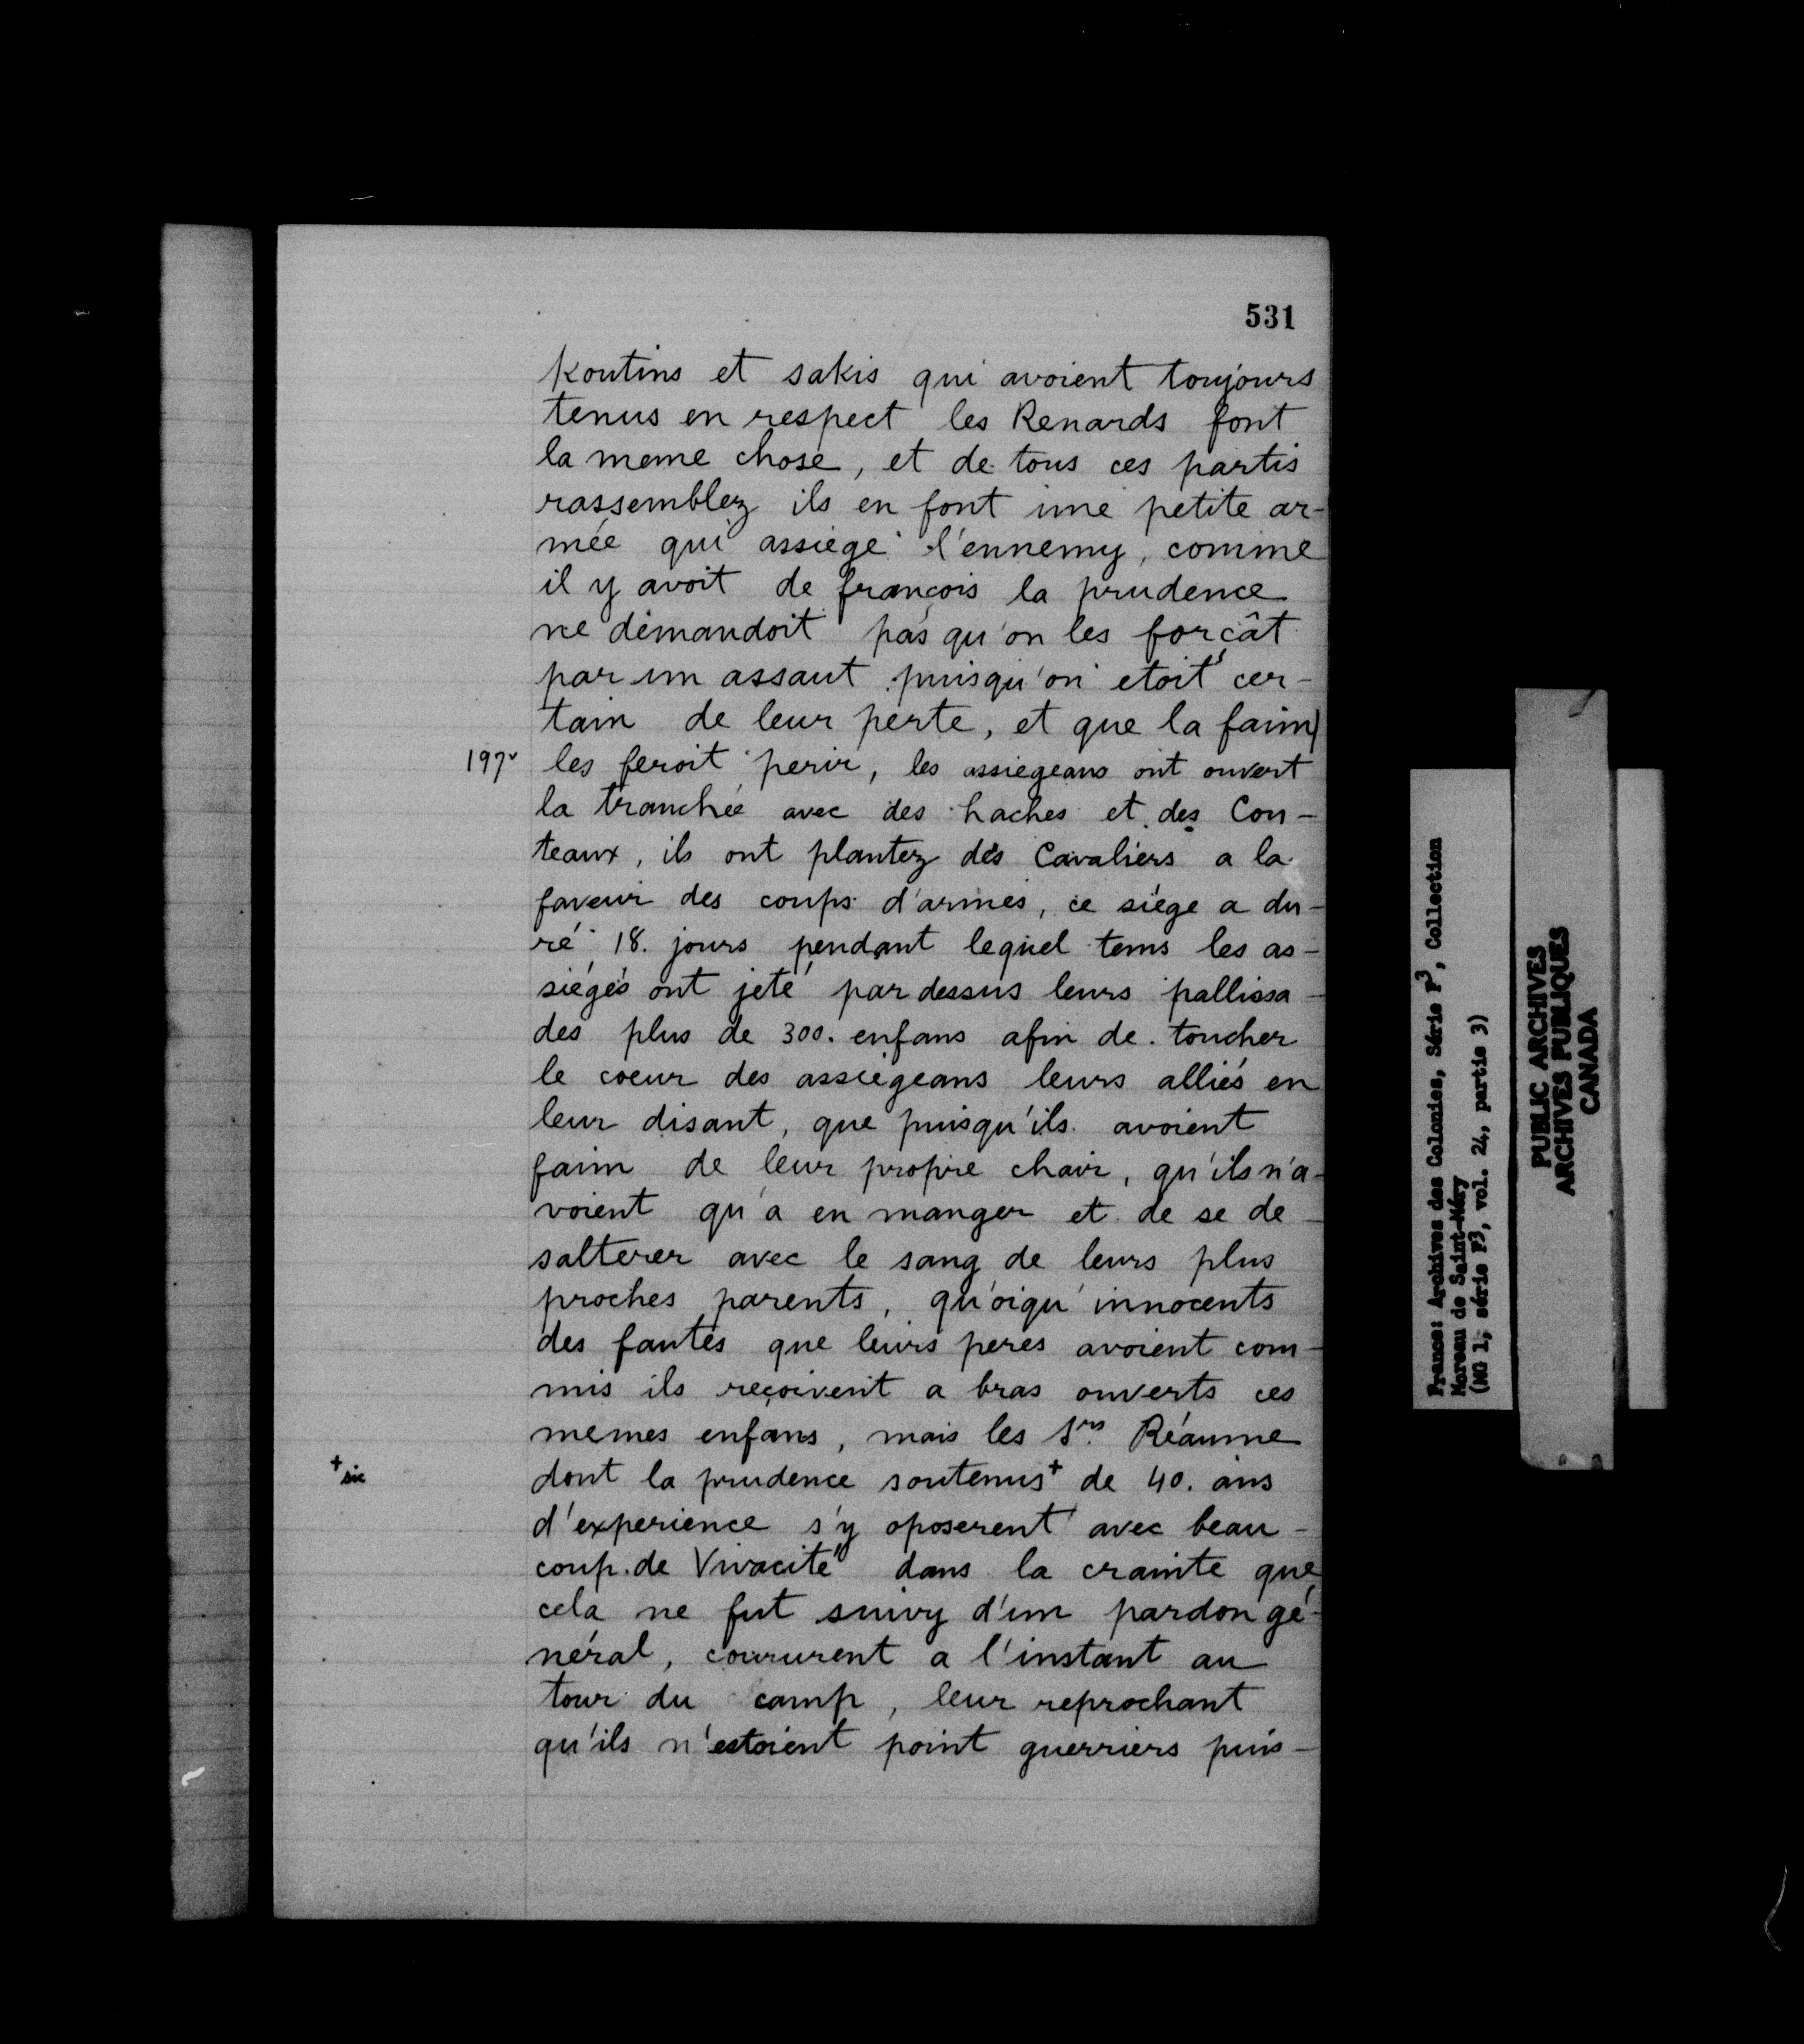 531
Koutins et sakis qui avoient toujours
tenus en respect les Renards font
la meme chose, et de tous ces partis
rassemblez ils en font une petite ar-
mée qui assiege l'ennemy, comme
il y avoit de françois la prudence
ne demandoit pas qu'on les forçât
par un assaut puisqu'on etoit cer-
tain de leur perte, et que la faim
197v les feroit perir, les assiegeans ont ouvert
la tranchée avec des haches et des Cou-
teaux, ils ont plantez des Cavaliers a la
faveur des coups d'armes, ce siége a du-
ré 18. jours pendant lequel tems les as-
siégés ont jeté par dessus leurs pallissa-
des plus de 300. enfans afin de toucher
le coeur des assiegeans leurs alliés en
leur disant, que puisqu'ils avoient
faim de leur propre chair, qu'ils n'a-
voient qu'a en manger et de se de-
salterer avec le sang de leurs plus
proches parents, qu'oiqu'innocents
des fautes que leurs peres avoient com-
mis ils reçoivent a bras ouverts ces
memes enfans, mais les Srs. Réaume
+ sic dont la prudence soutenus+ de 40. ans
d'experience s'y oposerent avec beau-
coup de Vivacité dans la crainte que
cela ne fut suivy d'un pardon gé-
néral, coururent a l'instant au
tour du camp, leur reprochant
qu'ils n'estoient point guerriers puis-
France: Archives des Colonies, Série F3, Collection
Moreau de Saint-Méry
(MG 1, série F3, vol. 24, partie 3)
PUBLIC ARCHIVES
ARCHIVES PUBLIQUES
CANADA